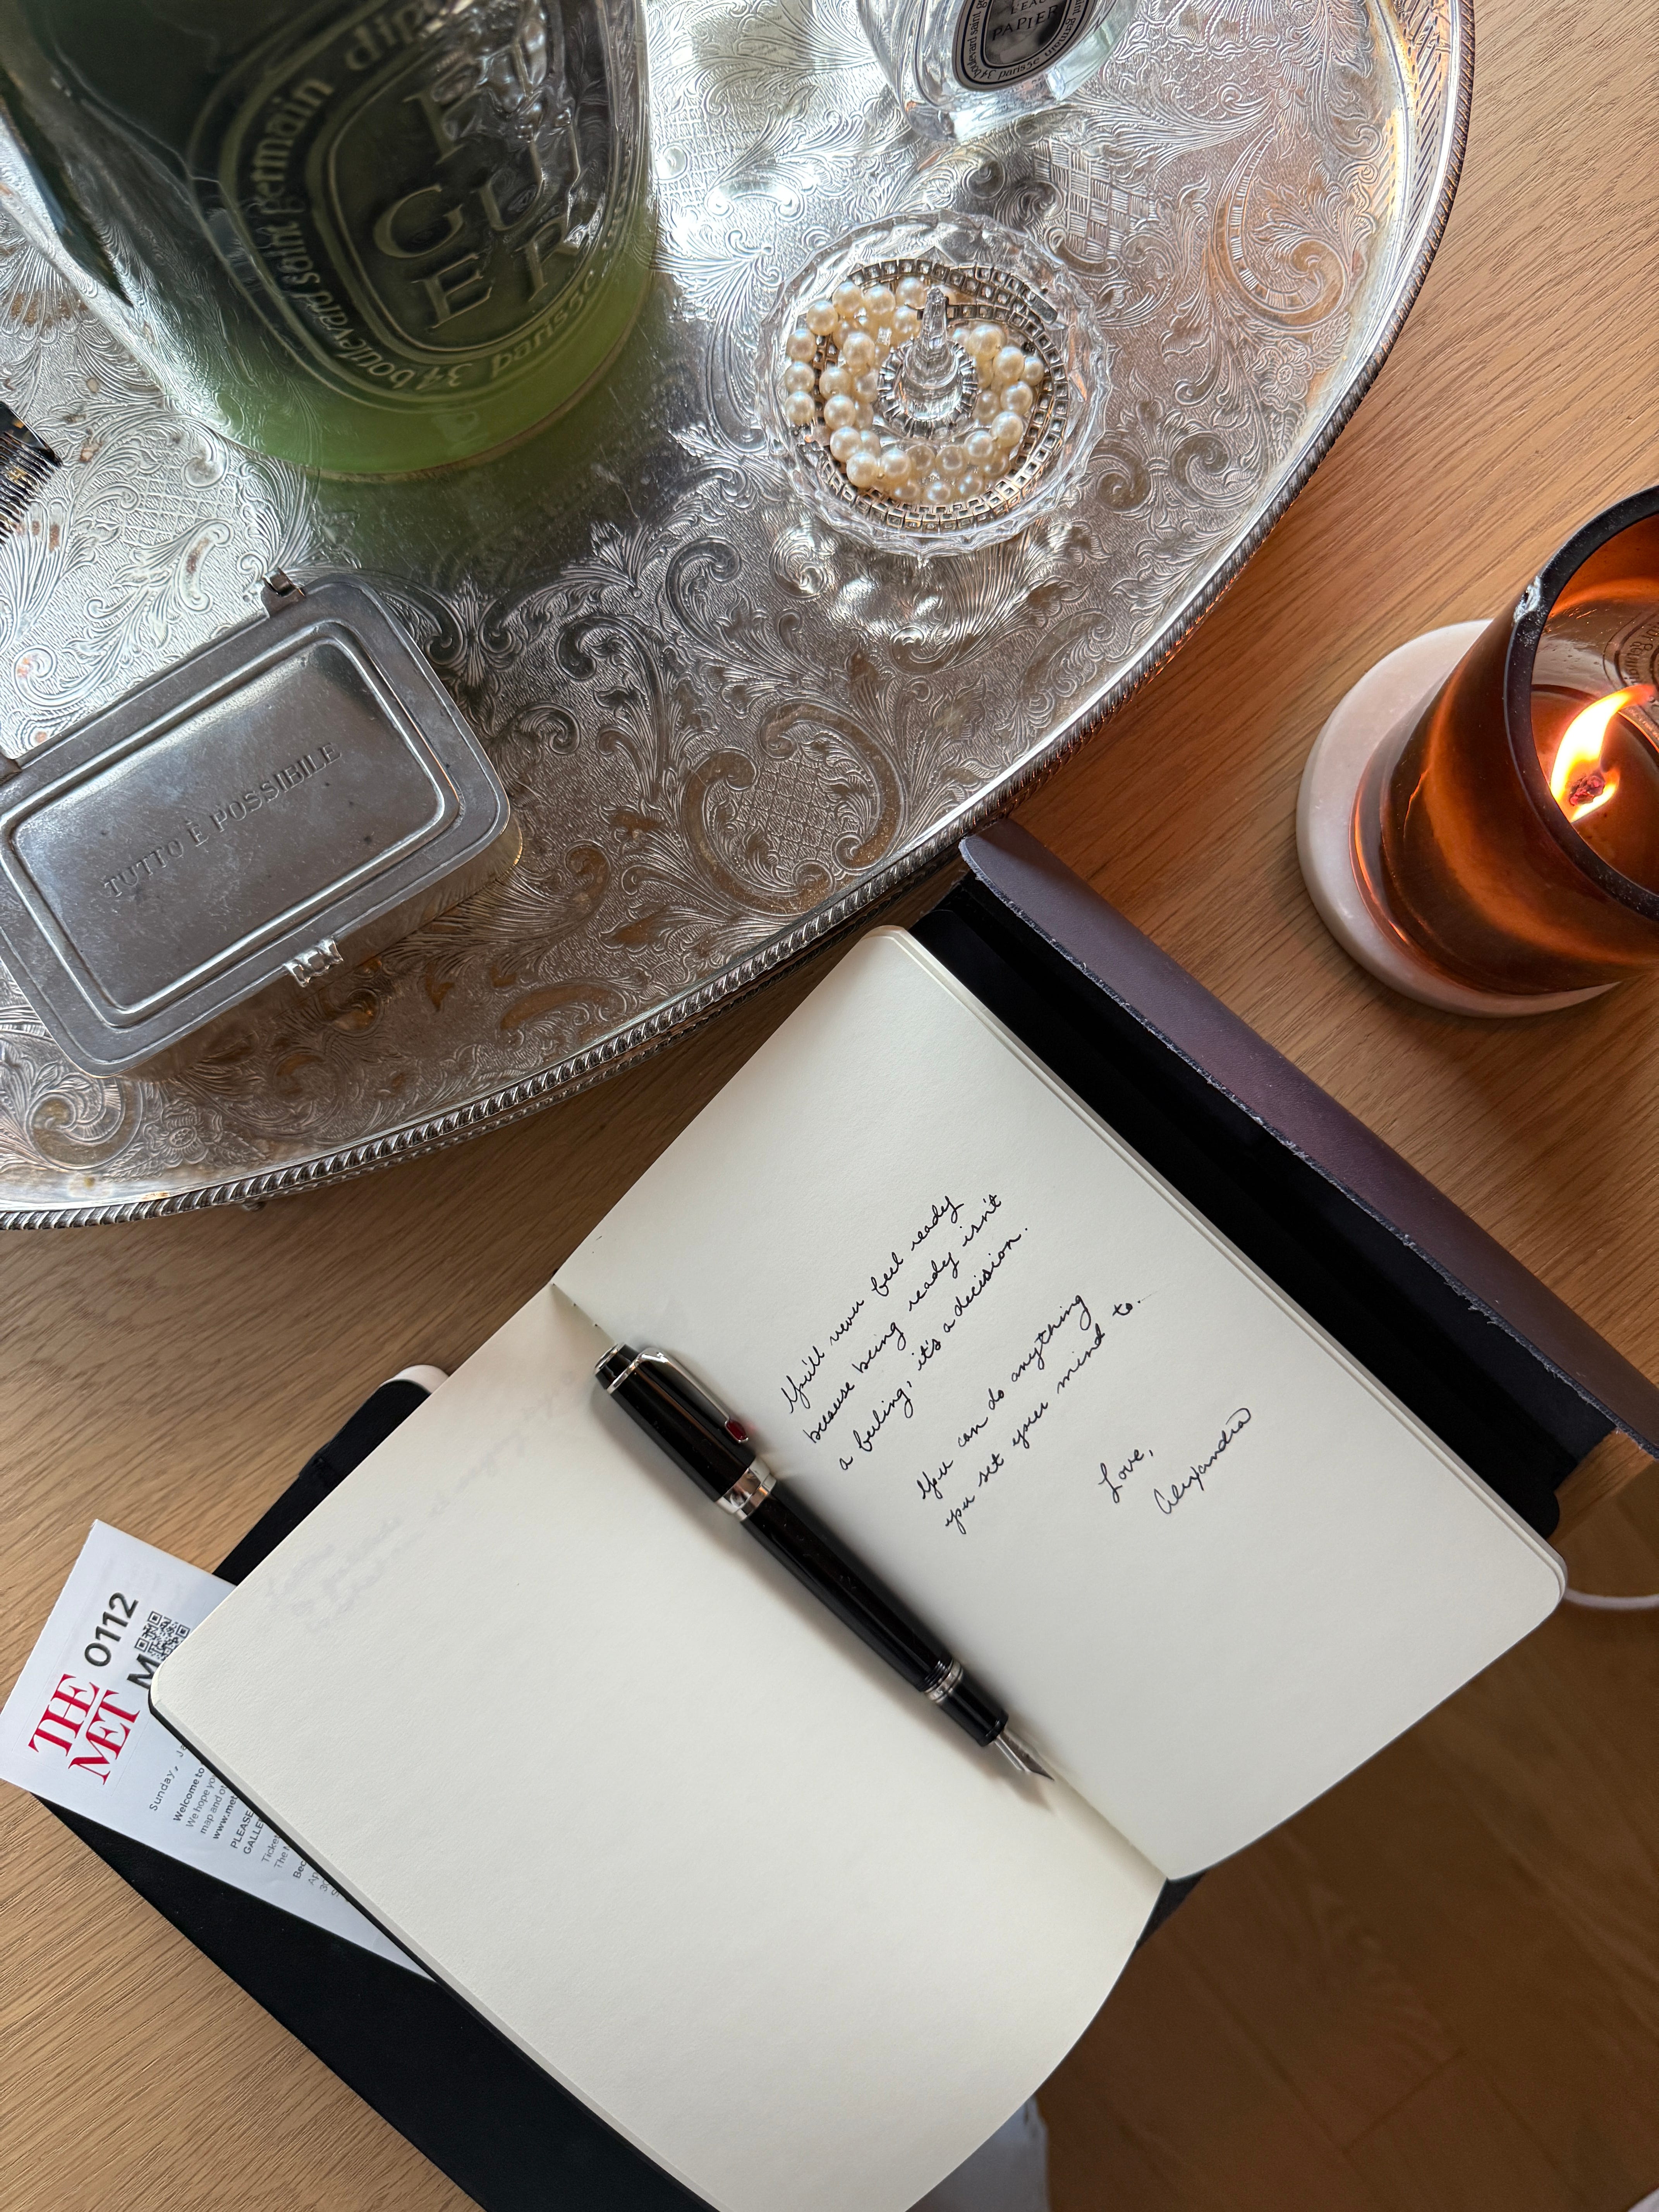 dip
34 boulevard saint germain paris5e
FI
GUI
ER
L'EAU
PAPIER
boulevard saint g
34 paris5e
TUTTO È POSSIBILE
You'll never feel ready
because being ready isn't
a feeling, it's a decision.
You can do anything
you set your mind to.
Love,
Alexandra
THE
MET
0112
M
Sunday, Ja
Welcome to
We hope yo
map and o
www.met
PLEASE
GALLE
Ticket
The M
Bec